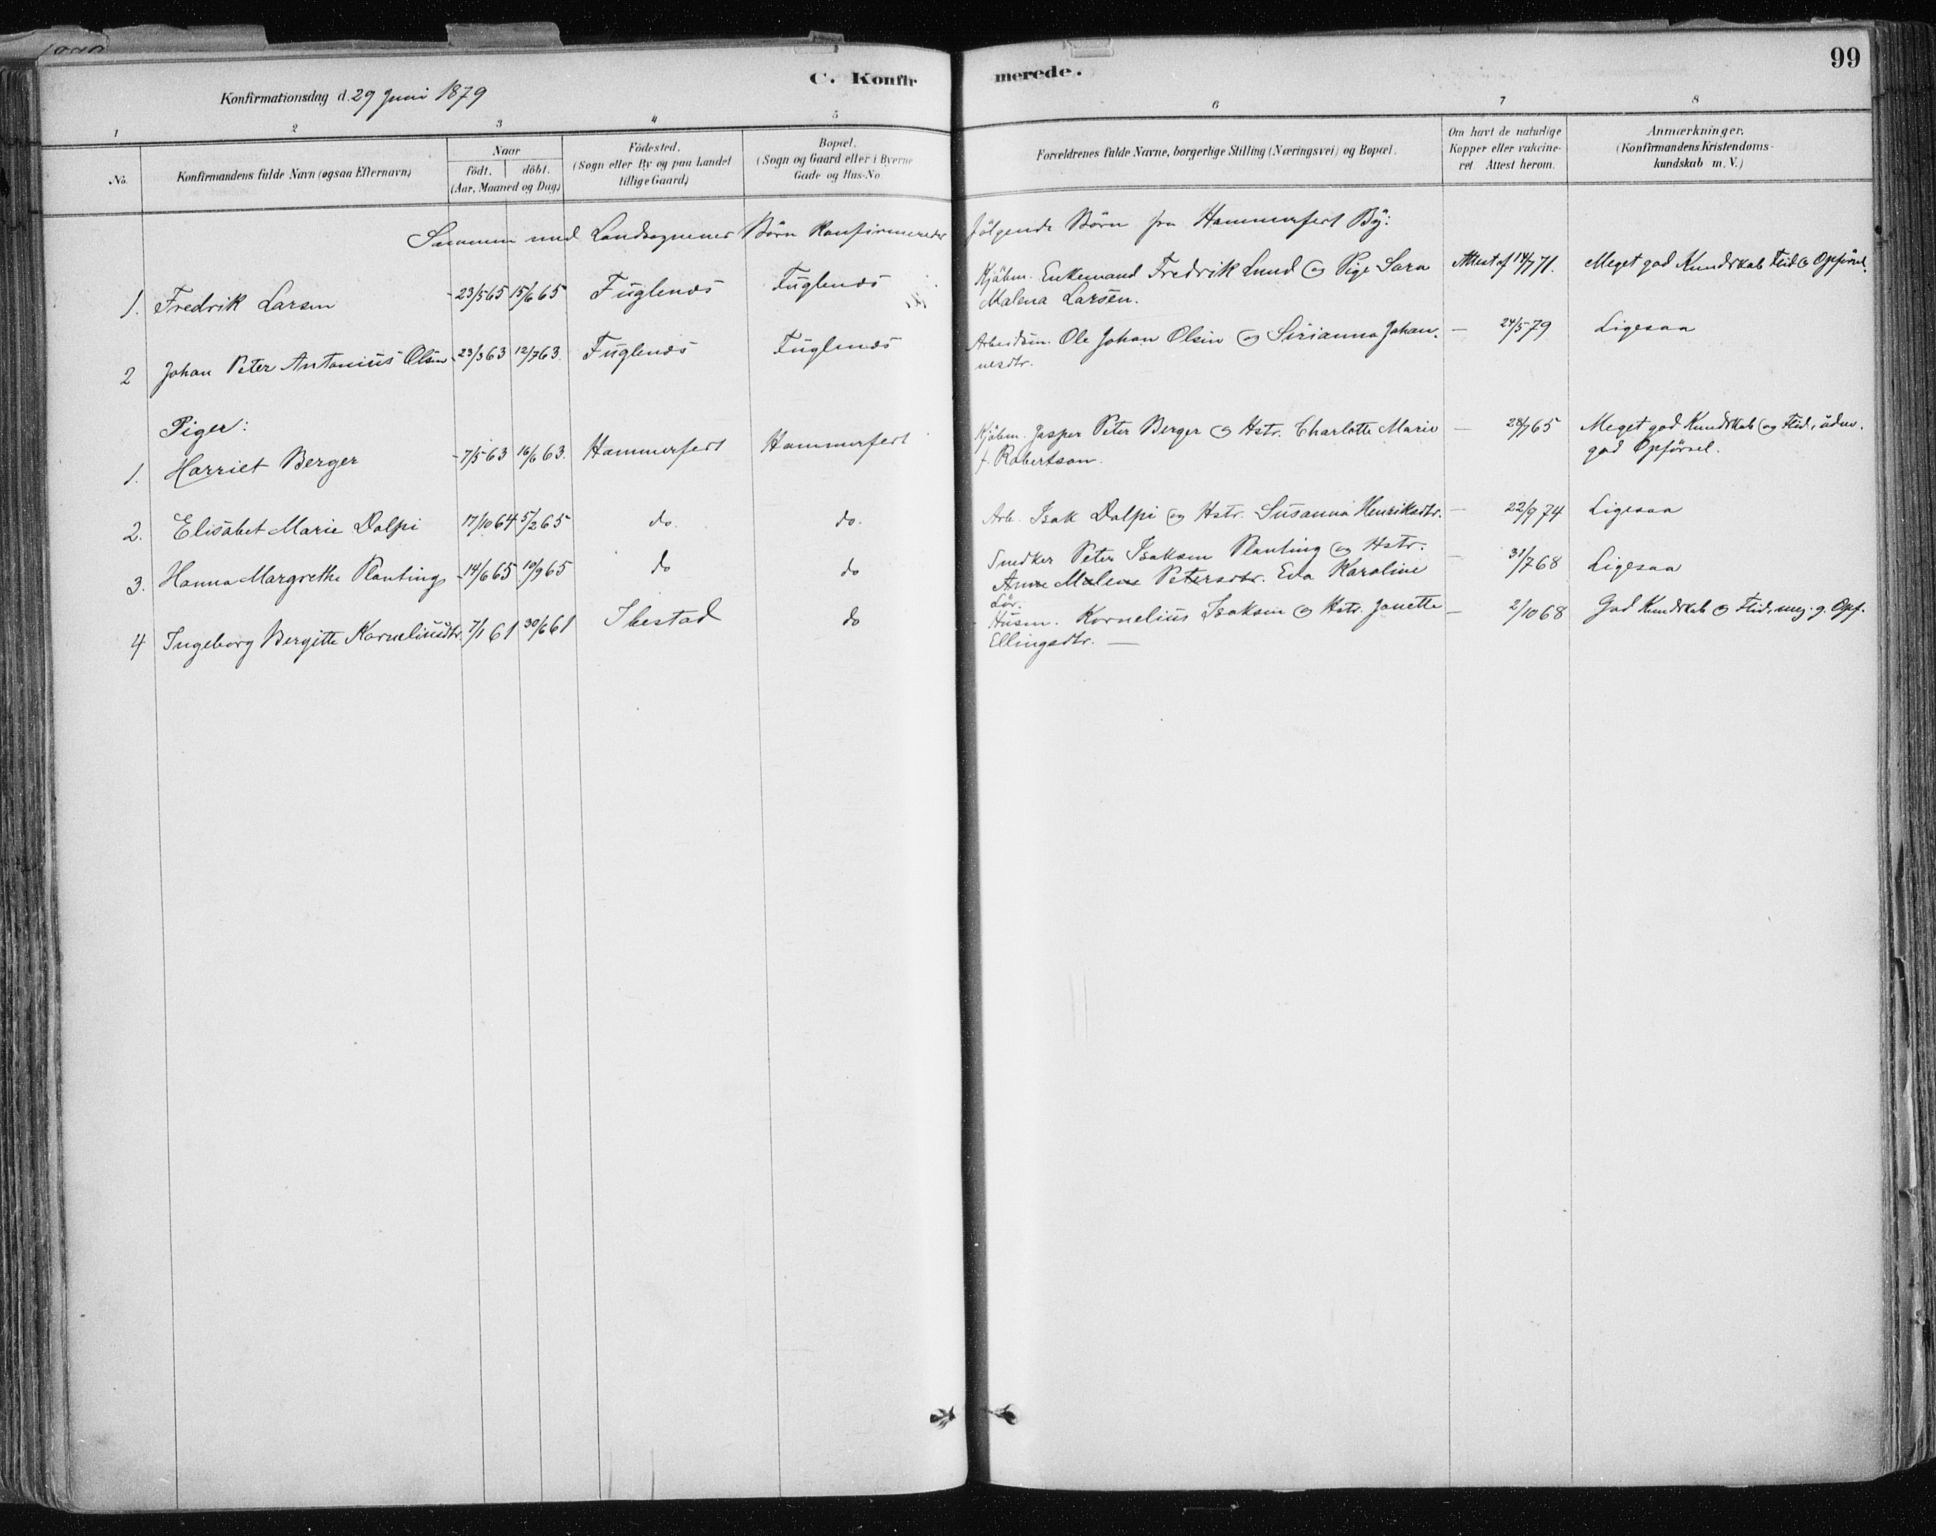 99
C. Konfirmerede.
Konfirmationsdag d. 29 Juni 1879
1 2 3 4 5 6 7 8
No.
Konfirmandens fulde Navn (ogsaa Efternavn)
Naar
födt. döbt.
(Aar, Maaned og Dag)
Födested.
(Sogn eller By og paa Landet
tillige Gaard)
Bopæl.
(Sogn og Gaard eller i Byerne
Gade og Hus-No.
Forældrenes fulde Navne, borgerlige Stilling (Næringsvei) og Bopæl.
Om havt de naturlige
Kopper eller vakcine-
ret. Attest herom.
Anmærkninger.
(Konfirmandens Kristendoms-
kundskab m. V.)
Sammen med Landsognenes Börn konfirmeredes følgende Börn fra Hammerfest By:
1. Fredrik Larsen 23/5 65 15/6 65 Fuglenæs Fuglenæs Kjöbm. Enkemand Fredrik Lund og Pige Sara Attest af 14/7 71. Meget god Kundskab Flid og Opførsel.
Malena Larsen.
2 Johan Peter Antonius Olsen 23/3 63 12/7 63. Fuglenæs Fuglenæs Arbeidsm. Ole Johan Olsen og Sirianna Johan- — 24/5 79 Ligesaa
nesdtr.
Piger:
1. Harriet Berger 7/5 63 16/6 63. Hammerfest Hammerfest Kjöbm. Jasper Peter Berger og Hstr. Charlotte Marie — 28/7 65 Meget god Kundskab og Flid, udm.
f. Robertson. god Opförsel.
2. Elisabet Marie Dalpi 17/10 64 5/2 65 do. do. Arb. Isak Dalpi og Hstr. Susanna Henriksdtr. — 22/9 74 Ligesaa
3. Hanna Margrethe Planting 14/6 65 10/9 65 do do Snedker Peter Isaksen Planting og Hstr. — 31/7 68 Ligesaa
Anne Malene Petersdtr. Eva Karoline
4 Ingeborg Bergitte Korneliusdtr. 7/1 61 30/6 61 Ibestad do Husm. Kornelius Isaksen og Hstr. Janette — 2/10 68 God Kundskab og Flid, meg. g. Opf.
Ellingsdtr. —